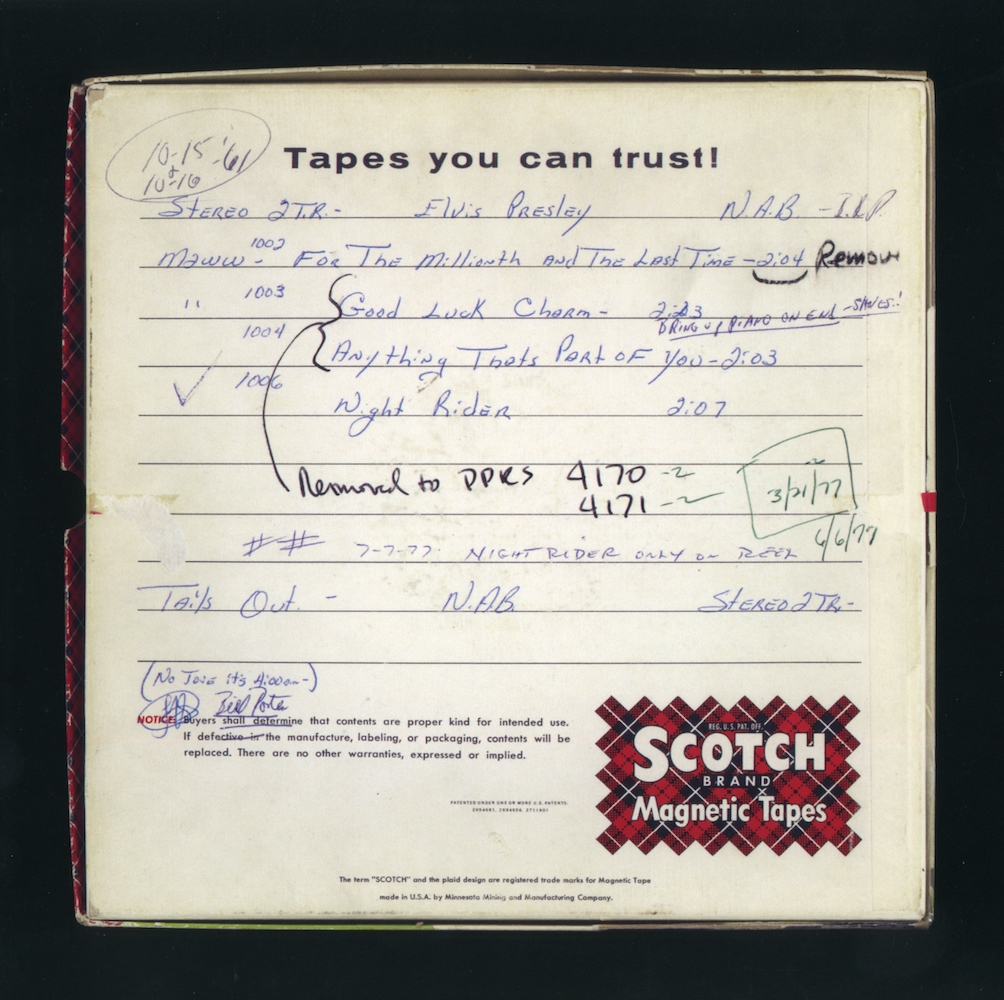 10-15-'61
& 10-16
Tapes you can trust!
Stereo 2TR.- Elvis Presley N.A.B. -I.L.P.
M2WW- 1002 For The Millionth and The Last Time -2:04 Remove
" 1003 Good Luck Charm - 2:23
Bring up piano on end -Slaves!
1004 Anything Thats Part of You-2:03
1006 Night Rider 2:07
Removed to DPRS 4170 -2
4171 -2
3/21/77
6/6/77
## 7-7-77 Night Rider only on reel
Tails Out. - N.A.B. Stereo 2 TR-
(No Jose it's 4:00am-)
Bill Porter
NOTICE: Buyers shall determine that contents are proper kind for intended use.
If defective in the manufacture, labeling, or packaging, contents will be
replaced. There are no other warranties, expressed or implied.
REG. U.S. PAT. OFF.
SCOTCH
BRAND
Magnetic Tapes
PATENTED UNDER ONE OR MORE U.S. PATENTS.
The term "SCOTCH" and the plaid design are registered trade marks for Magnetic Tape
made in U.S.A. by Minnesota Mining and Manufacturing Company.